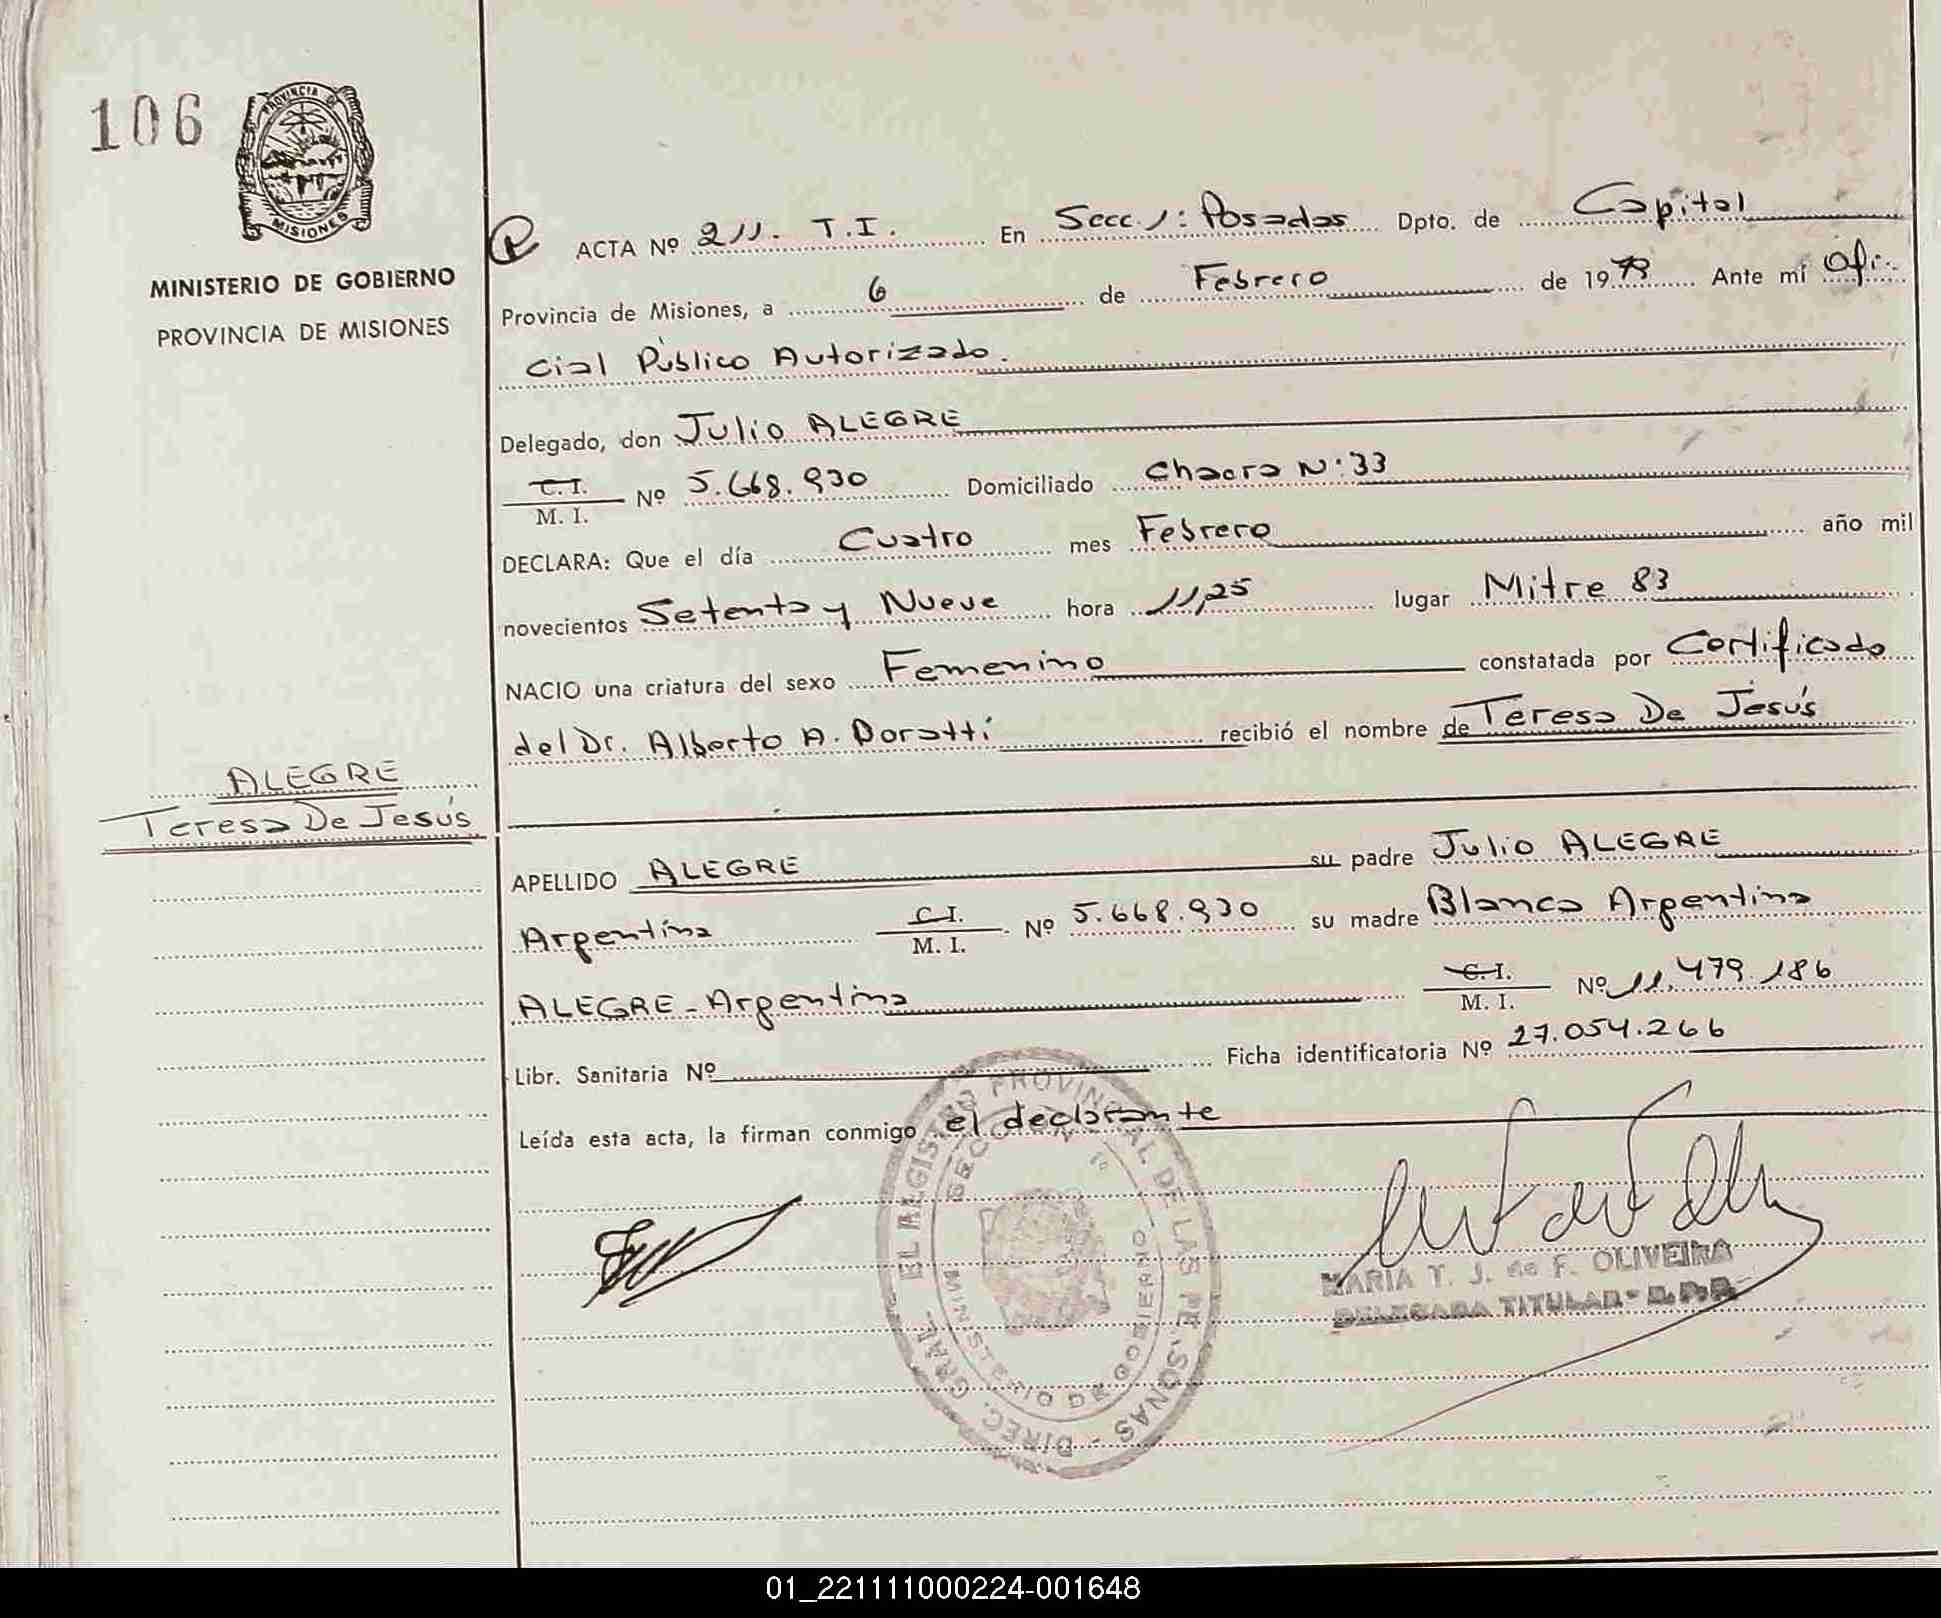 106
PROVINCIA DE
MISIONES
MINISTERIO DE GOBIERNO
PROVINCIA DE MISIONES
ALEGRE
Teresa De Jesús
ACTA Nº 211. T.I. En Secc 1: Posadas Dpto. de Capital
Provincia de Misiones, a 6 de Febrero de 1979 Ante mí Ofi-
cial Público Autorizado.
Delegado, don Julio ALEGRE
C.I.
M. I. Nº 5.668.930 Domiciliado Chacra N: 33
DECLARA: Que el día Cuatro mes Febrero año mil
novecientos Setenta y Nueve hora 11,25 lugar Mitre 83
NACIO una criatura del sexo Femenino constatada por Certificado
del Dr. Alberto A. Doratti recibió el nombre de Teresa De Jesús
APELLIDO ALEGRE su padre Julio ALEGRE
Argentina C.I.
M. I. Nº 5.668.930 su madre Blanca Argentina
ALEGRE - Argentina C.I.
M. I. Nº 11.479.186
Libr. Sanitaria Nº Ficha identificatoria Nº 27.054.266
Leída esta acta, la firman conmigo el declarante
MARIA T. J. de F. OLIVEIRA
DELEGADA TITULAR - R.P.P.
MINISTERIO DE GOBIERNO
01_221111000224-001648